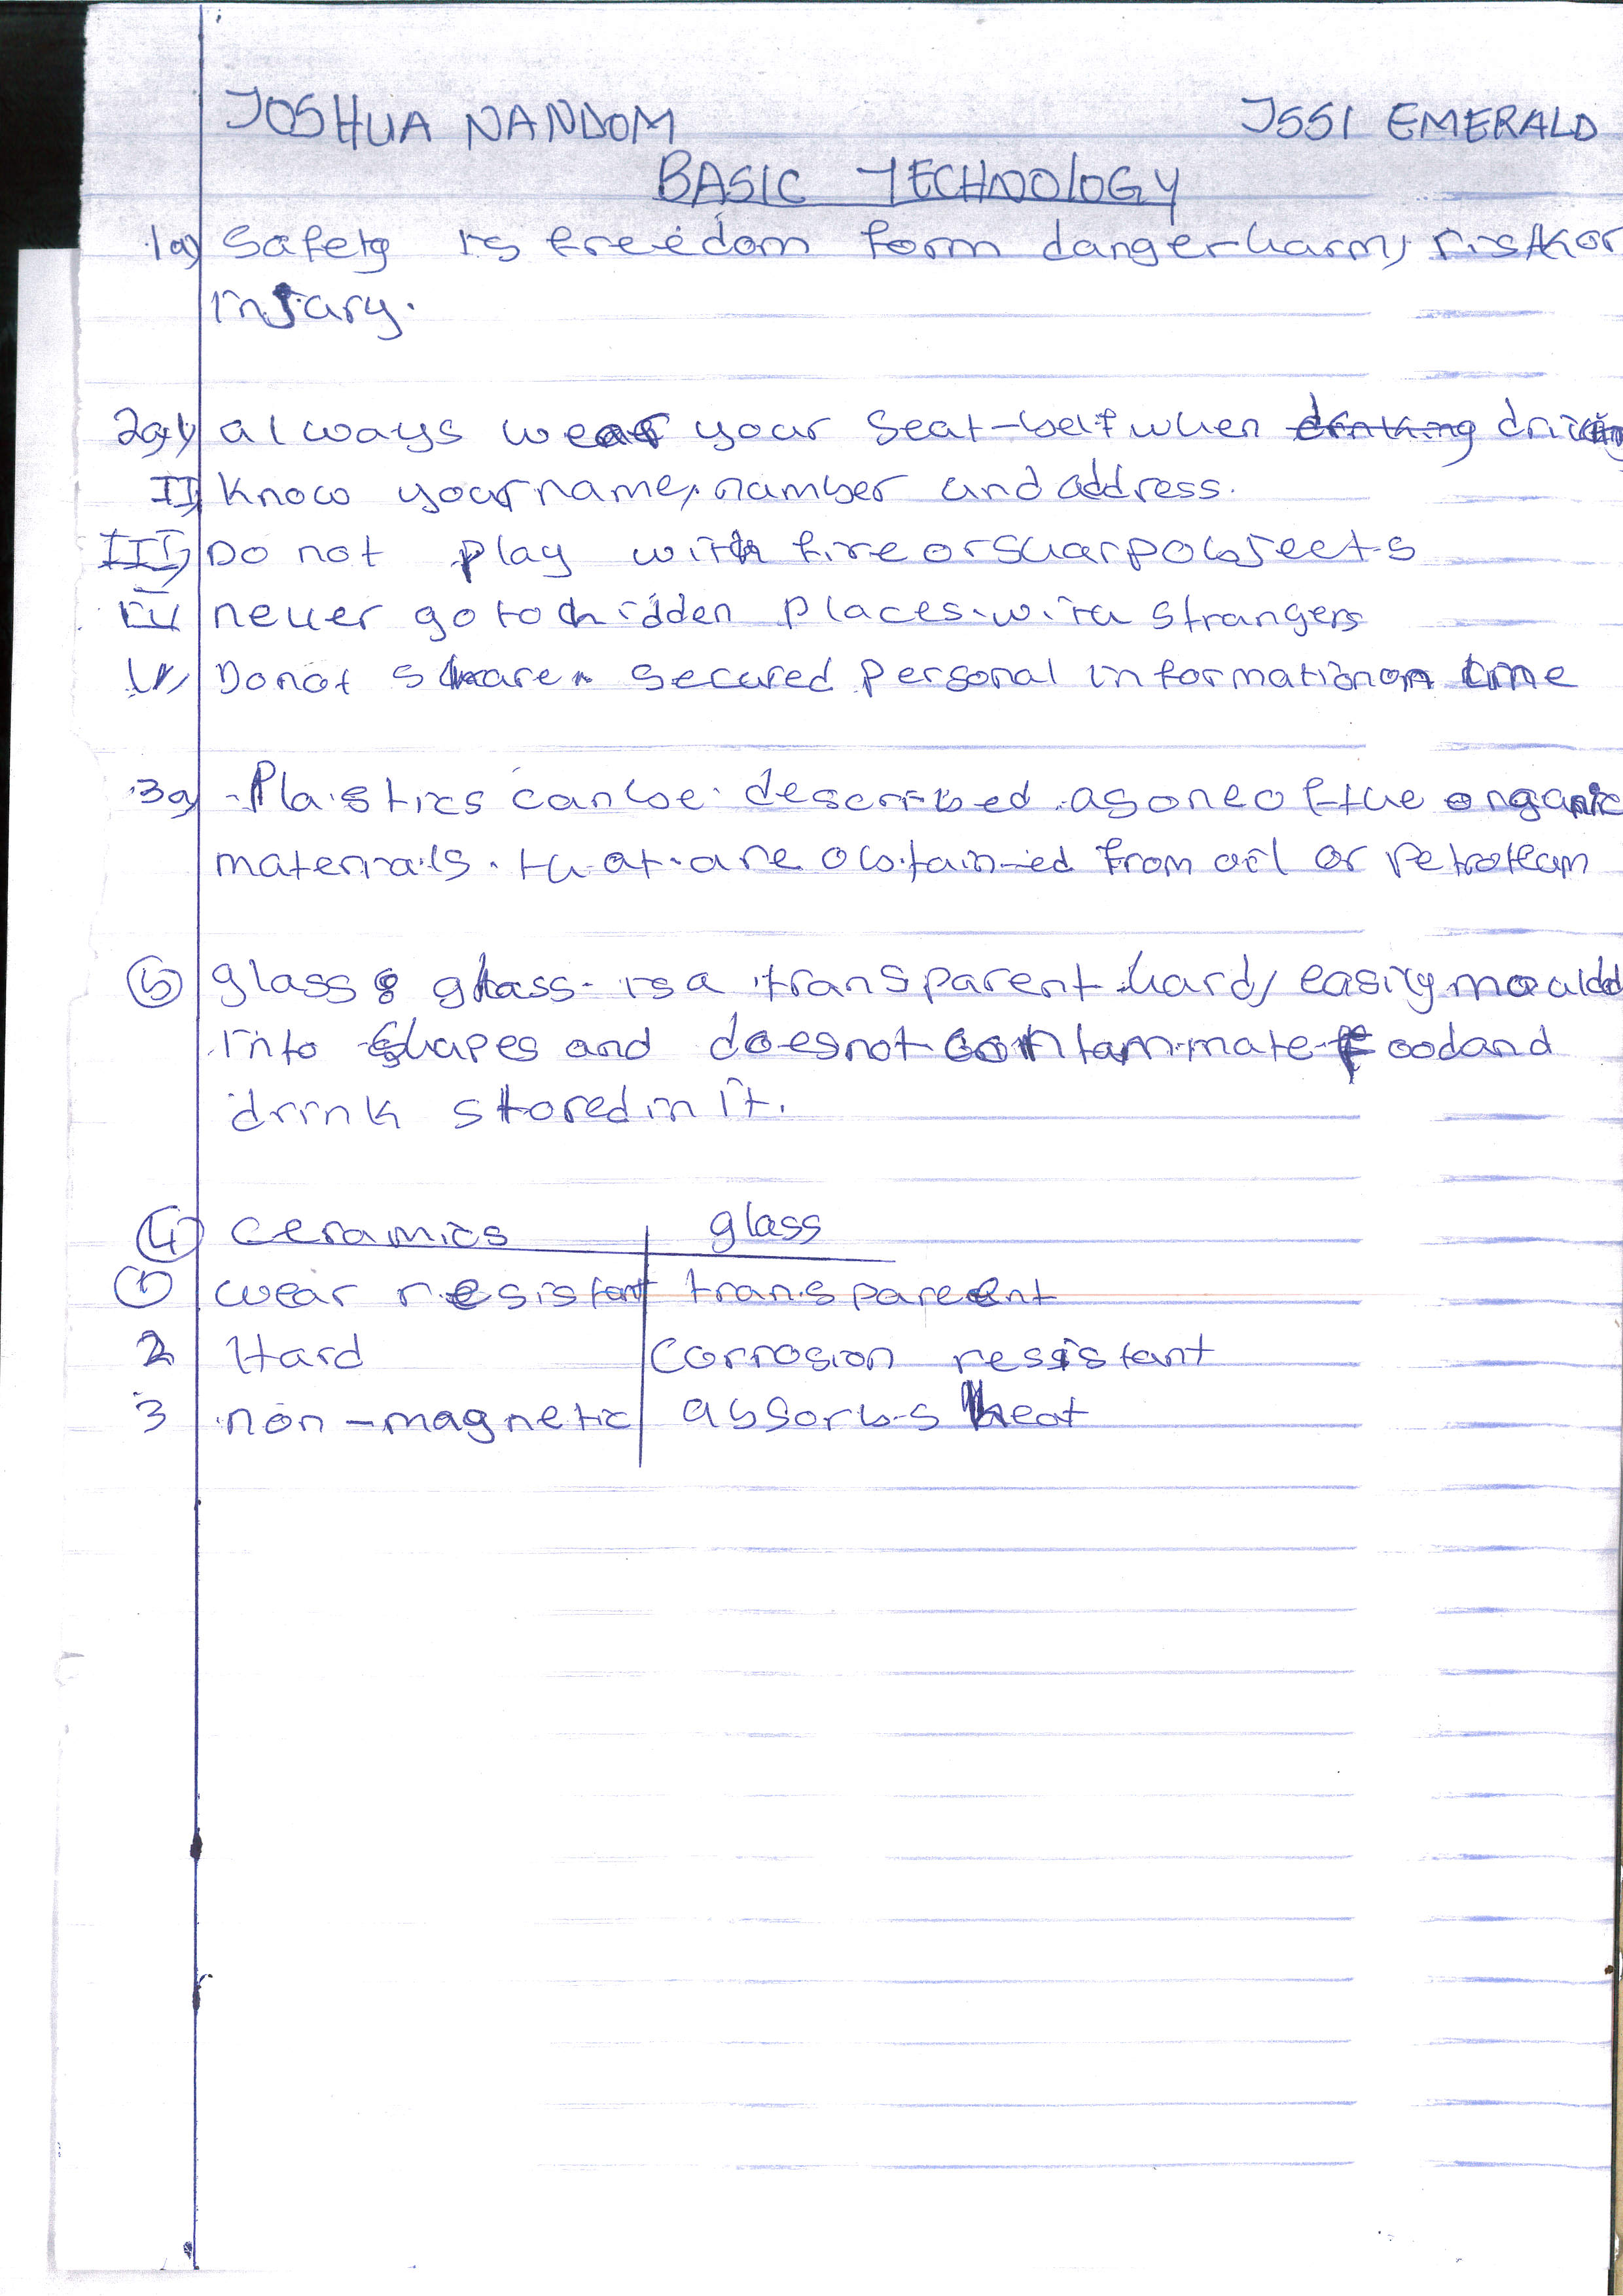 JOSHUA NANDOM JSS1 EMERALD
BASIC TECHNOLOGY
1a) Safety is freedom form danger harm, risk or
injury.
2a)i) always wear your seat-belt when drinking driving
II) Know your name, number and address.
III) Do not play with fire or sharp objects
IV never go to hidden places with strangers
V) Do not share secured personal information on line
3a) Plastics can be described as one of the organic
materials that are obtained from oil or petroleum
(b) glass: glass is a transparent hard, easily mould
into shapes and does not contaminate food and
drink stored in it.
(4) ceramics glass
(1) wear resistant transparent
2 Hard Corrosion resistant
3 non-magnetic absorbs heat